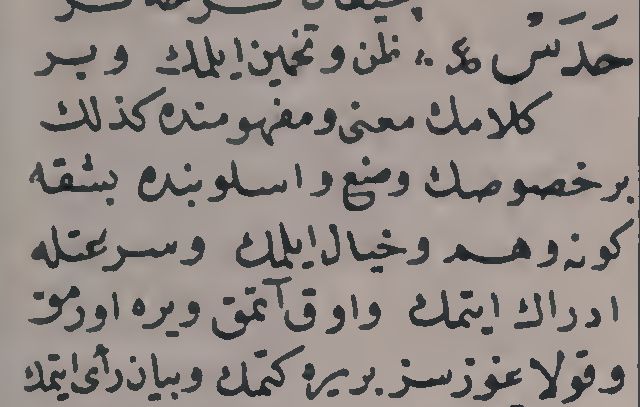 حدس ظن و تخمين ايلمك و بر
كلامك معنى و مفهومنده كذلك
بر خصوصك وضع و اسلوبنده بشقه
كونه وهم و خيال ايلمك و سرعتله
ادراك ايتمك و اوق آتمق و يره اورمق
و قولاغوزسز بر يره كتمك و بيان رأى ايتمك